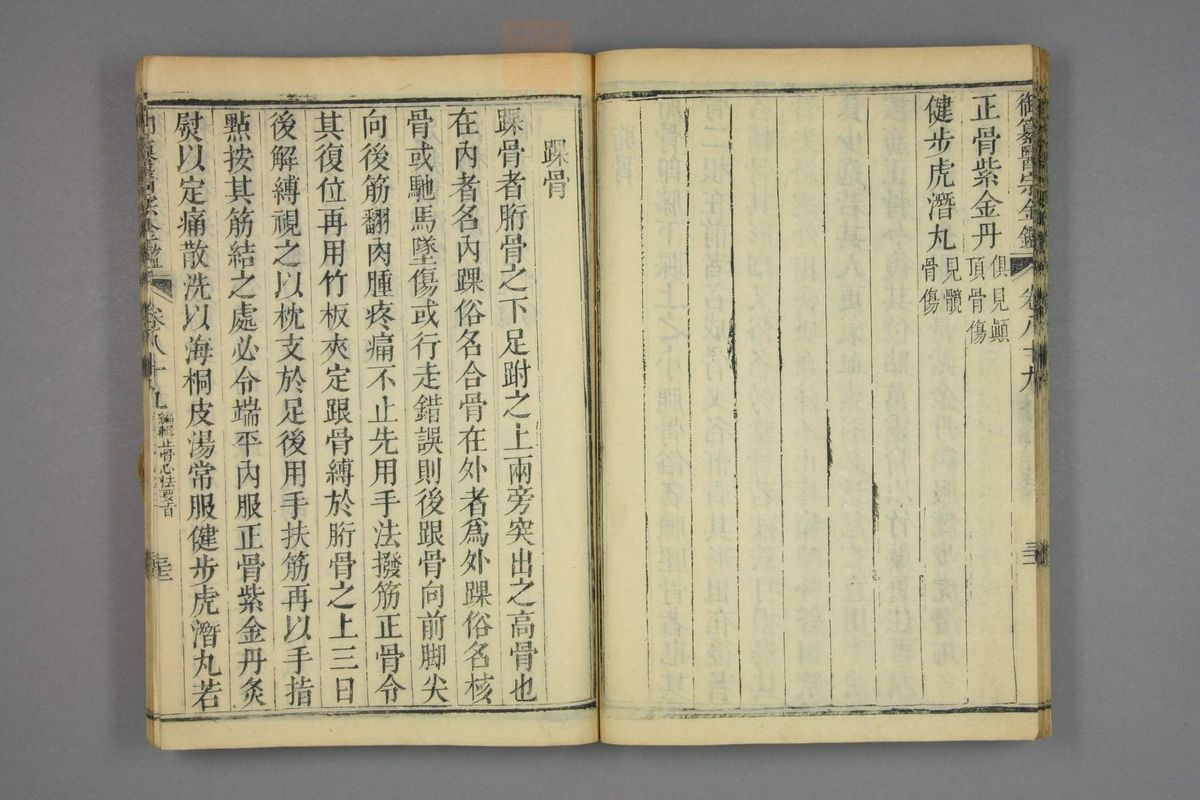 御纂醫宗金鑑 卷八十九
正骨紫金丹 俱見顛頂骨傷
健步虎潛丸 見髖骨傷
踝骨
踝骨者䯒骨之下足跗之上兩旁突出之高骨也
在內者名內踝俗名合骨在外者為外踝俗名核
骨或馳馬墜傷或行走錯誤則後跟骨向前脚尖
向後筋翻肉腫疼痛不止先用手法撥筋正骨令
其復位再用竹板夾定跟骨縛於䯒骨之上三日
後解縛視之以枕支於足後用手扶筋再以手指
點按其筋結之處必令端平內服正骨紫金丹灸
熨以定痛散洗以海桐皮湯常服健步虎潛丸若
卷八十九 編輯正骨心法要旨